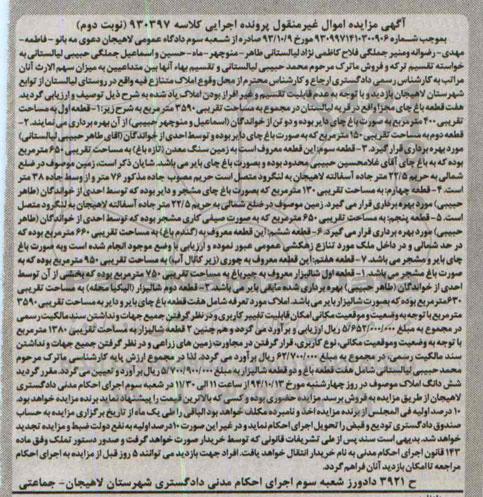 آگهی مزایده اموال غیرمنقول پرونده اجرایی کلاسه ۹۳۰۳۹۷ (نوبت دوم)
بموجب شماره ۹۳۰۹۹۷۱۴۱۰۳۰۰۹۰۶ مورخ ۹۳/۱۰/۹ صادره از شعبه سوم دادگاه عمومی لاهیجان دعوی مه بانو - فاطمه-
مهدی-رضوانه ومنیر جملگی فلاح کاظمی نژاد لیالستانی بطرفیت طاهر-منوچهر-ماه-حسین واسماعیل جملگی حبیبی لیالستانی به
خواسته تقسیم ترکه و فروش ماترک مرحوم محمد حبیبی لیالستانی و تقسیم بهاء آنها بین متداعیین به میزان سهم الارث آنان
مراتب به کارشناس رسمی دادگستری ارجاع و کارشناس محترم از محل وقوع املاک متنازع فیه واقع در روستای لیالستان از توابع
شهرستان لاهیجان بازدید و با توجه به عدم قابلیت تقسیم و غیر افراز بودن املاک یاد شده به شرح ذیل توصیف و ارزیابی گردید
هفت قطعه باغ چای مجزا واقع در قریه لیالستان در مجموع به مساحت تقریبی ۳۵۹۰ مترمربع به شرح زیر: ۱-قطعه اول به مساحت
تقریبی ۴۰۰ مترمربع به صورت باغ چای دایر بوده و دو تن از خواندگان (اسماعیل و منوچهر حبیبی) از آن بهره برداری می نمایند. ۲-
قطعه دوم به مساحت تقریبی ۱۵۰ مترمربع که به صورت باغ چای دایر بوده و توسط احدی از خواندگان (آقای طاهر حبیبی لیالستانی)
مورد بهره برداری قرار گیرد. ۳- قطعه سوم: این قطعه معروف است به زمین سنگ معدن (تازه باغ) به مساحت تقریبی ۶۵۰ مترمربع
بوده که به باغ چای آقای غلامحسین حبیبی محدود بوده و بصورت باغ چای بایر می باشد. شایان ذکر است، زمین موصوف در ضلع
شمالی به حریم ۲۲/۵ متر جاده آسفالته لاهیجان به لنگرود متصل است حریم مصوب جاده مذکور ۷۶ متر و از وسط جاده ۳۸ متر
است. ۴- قطعه چهارم: به مساحت تقریبی ۱۳۰ مترمربع که بصورت باغ چای مشجر و دایر بوده که توسط احدی از خواندگان (طاهر
حبیبی) مورد بهره برداری قرار می گیرد. زمین موصوف در ضلع شمالی به حریم ۲۲/۵ متر جاده آسفالته لاهیجان به لنگرود متصل
است. ۵- قطعه پنجم: به مساحت تقریبی ۶۵۰ مترمربع که به صورت صیفی کاری مشجر بوده که توسط احدی از خواندگان (طاهر
حبیبی) مورد بهره برداری قرار می گیرد. ۶- قطعه ششم: این قطعه معروف به (گندم باغ) به مساحت تقریبی ۶۶۰ مترمربع بوده که
در حد شمالی و در داخل ملک مورد تنازع زهکشی عمومی عبور نموده و ارزیابی از وضع موجود انجام شده است وبه صورت باغ
چای بایر و مشجر می باشد. ۷- قطعه هفتم: این قطعه معروف به چوری (زیر کانال آب) به مساحت تقریبی ۹۵۰ مترمربع که به
صورت باغ مشجر می باشد. ۱- قطعه اول شالیزار معروف به جیرباغ به مساحت تقریبی ۷۵۰ مترمربع بوده که بخشی از آن توسط
احدی از خواندگان (طاهر حبیبی) بهره برداری شده مابقی بایر می باشد. ۲- قطعه دوم شالیزار (الیکیا محله) به مساحت تقریبی
۶۳۰مترمربع بوده که بصورت شالیزار بایر می باشد. املاک مورد تعرفه شامل هفت قطعه باغ چای بایر و دایر به مساحت تقریبی ۳۵۹۰
مترمربع با توجه به وضعیت و موقعیت مکانی امکان قابلیت تغییر کاربری و در نظر گرفتن جمیع جهات و نداشتن سند مالکیت رسمی
در مجموع به مبلغ ۵/۶۵۲/۰۰۰/۰۰۰ ریال ارزیابی و برآورد می گردد و هم چنین ۲ قطعه شالیزار، به مساحت تقریبی ۱۳۸۰ مترمربع
با توجه به وضعیت وموقعیت مکانی، نوع کاربری، قرار گرفتن در مجاورت زمین های زراعی و در نظر گرفتن جمیع جهات و نداشتن
سند مالکیت رسمی، در مجموع به مبلغ ۶۲/۷۰۰/۰۰۰ ریال برآورد می گردد. لذا در مجموع ارزش پایه کارشناسی ماترک مرحوم
محمد حبیبی لیالستانی شامل هفت قطعه باغ و دو قطعه شالیزار به مبلغ ۵/۷۰۰/۹۰۰/۰۰۰ ریال برآورد و تعیین می گردد. مقرر گردید
شش دانگ املاک موصوف در روز چهارشنبه مورخ ۹۴/۱۰/۱۳ از ساعت ۱۱ الی ۱۱/۳۰ در شعبه سوم اجرای احکام مدنی دادگستری
لاهیجان از طریق مزایده به فروش برسد مزایده حضوری بوده و کسی که بالاترین قیمت را پیشنهاد نماید برنده مزایده خواهد بود.
۱۰ درصد اولیه فی المجلس از برنده مزایده اخذ و نامبرده مکلف خواهد بود الباقی را طی یک ماه از تاریخ برگزاری مزایده به حساب
صندوق دادگستری تودیع و قبض را تحویل اجرای احکام نماید و در غیر این صورت ۱۰ درصد اولیه به نفع دولت ضبط و مزایده تجدید
خواهد شد. بدیهی است سند پس از طی تشریفات قانونی که توسط خریدار صورت خواهد گرفت و صدور دستور تملک وفق ماده
۱۴۳ قانون اجرای احکام مدنی به نام خریدار انتقال خواهد یافت. افراد جهت بازدید می توانند ۵ روز قبل از مزایده به اجرای احکام
مراجعه تا امکان بازدید آنان فراهم گردد.
ح ۳۹۲۱ دادورز شعبه سوم اجرای احکام مدنی دادگستری شهرستان لاهیجان- جماعتی